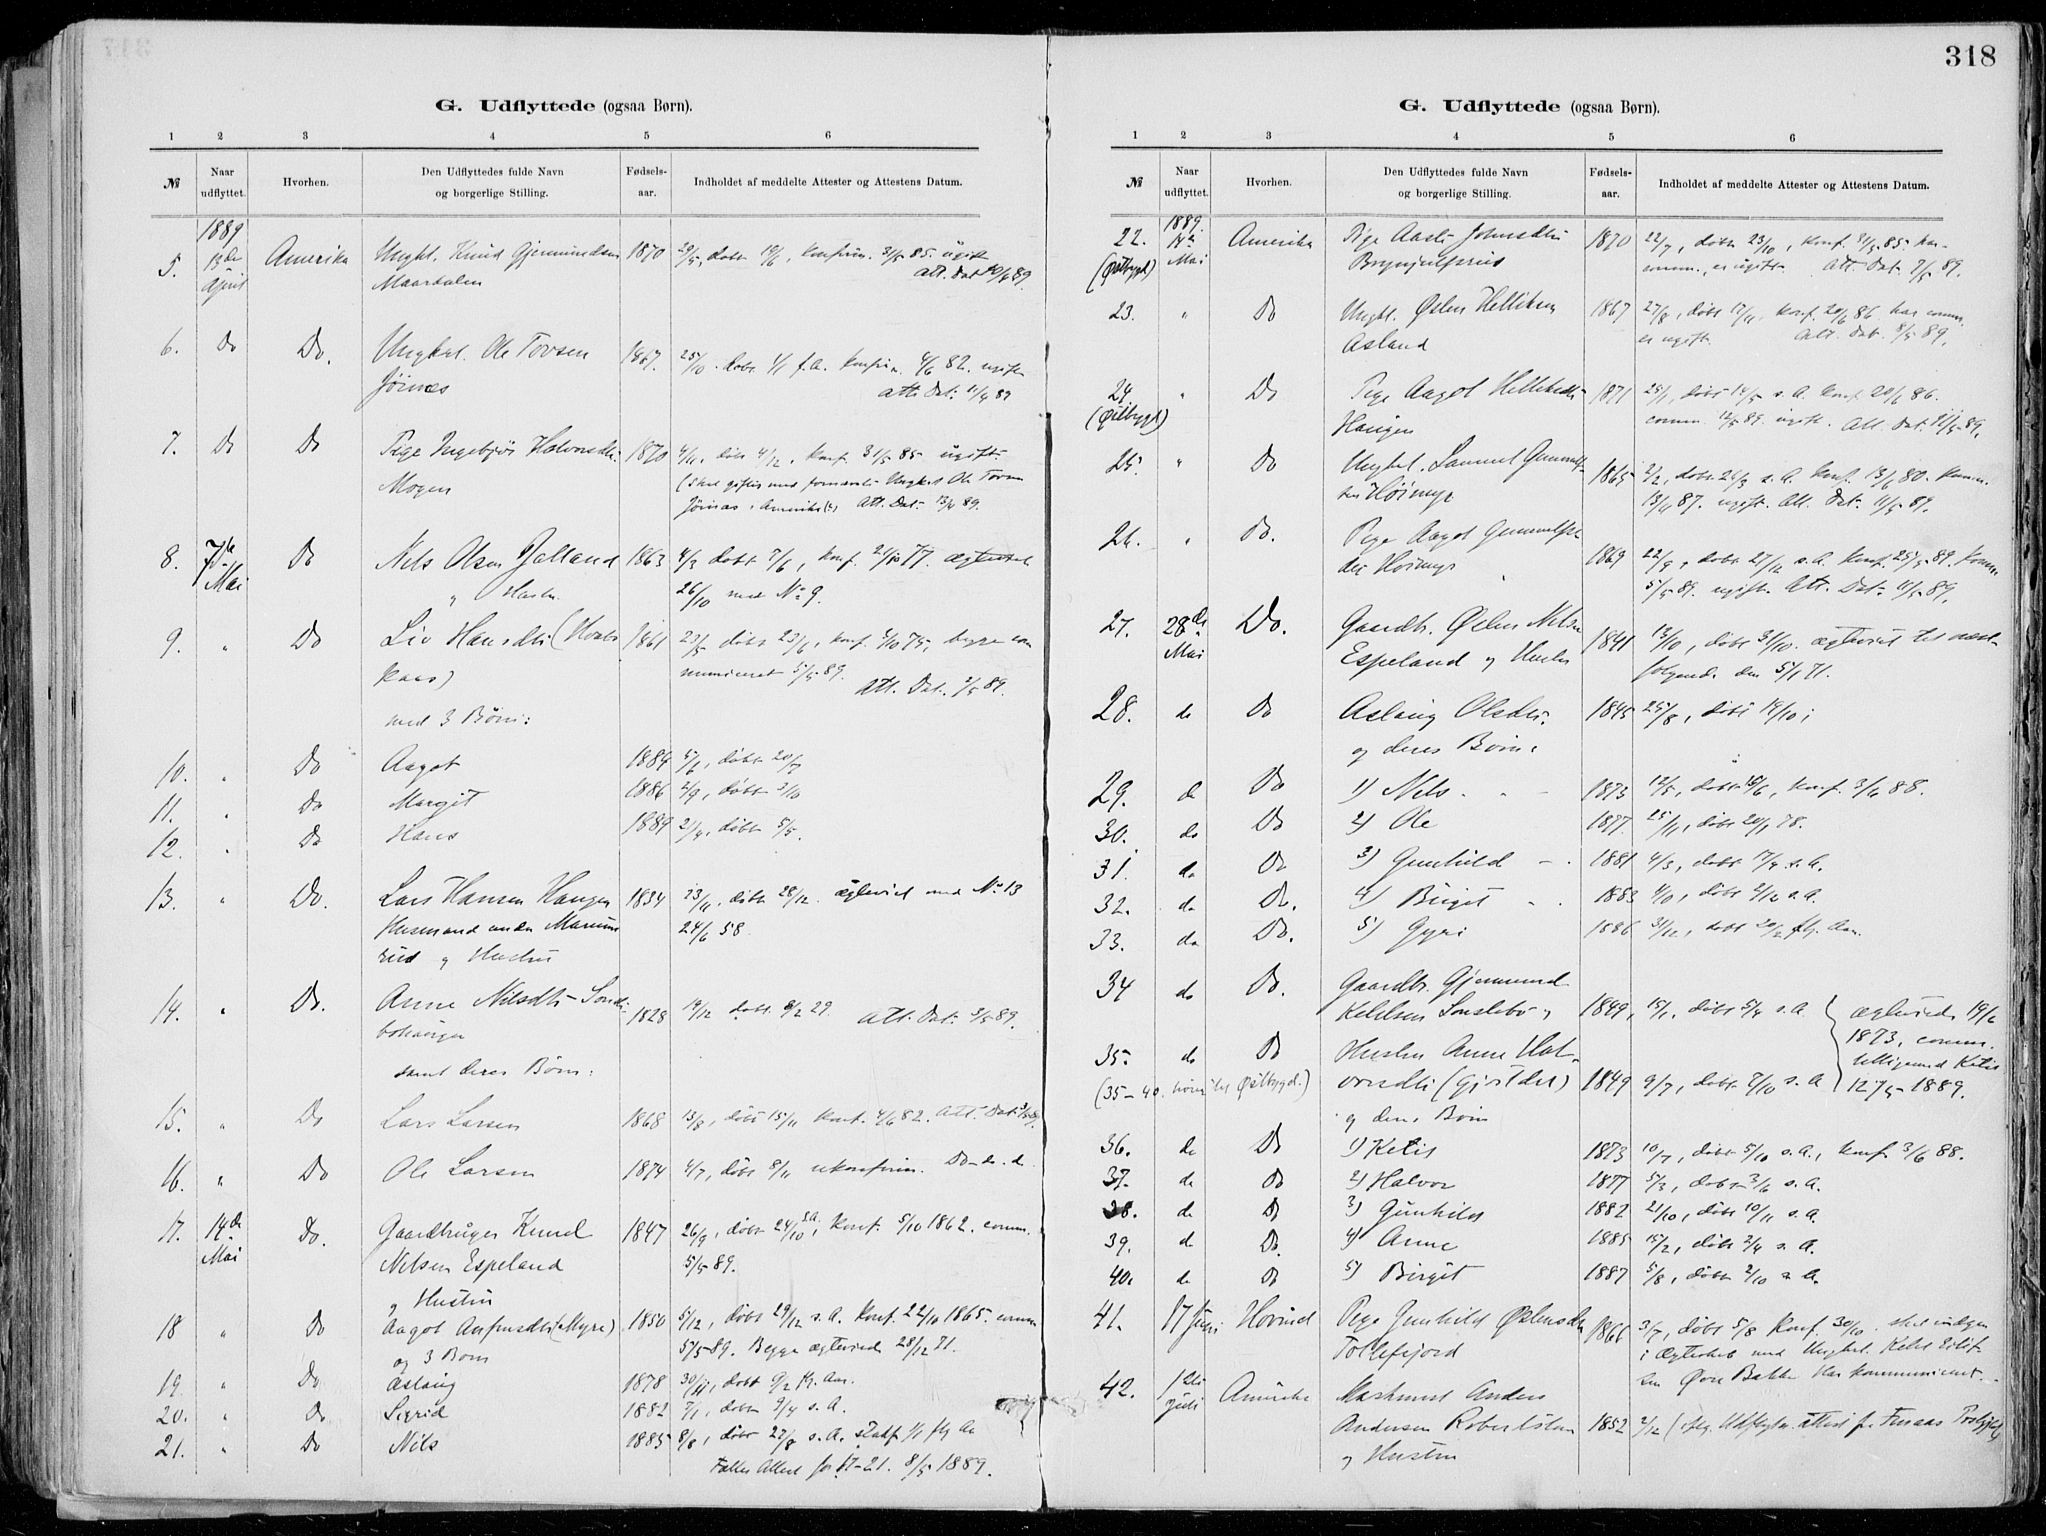 318
G. Udflyttede (ogsaa Børn).
1 2 3 4 5 6
№ Naar udflyttet. Hvorhen. Den Udflyttedes fulde Navn og borgerlige Stilling. Fødselsaar. Indholdet af meddelte Attester og Attestens Datum.
1889
5. 13de April Amerika Ungkl. Knud Gjermundsen 1870 29/5, døbt 19/6, konfirm. 31/5 85. ugift
Maardalen
6. Do Do. Ungkal. Ole Tovsen 1867. 25/10. døbt 1/1 f.A. konfirm. 4/6 82. ugift
Jøirnæs Att. Dat. 11/4 89
7. Do Do Pige Ingebjør Halvorsdtr. 1870 4/11, døbt 4/12, konf. 31/5 85 ugift.
Mogen (skal giftes med fornævnte Ungkal Ole Tovsen
Jørnæs i Amerika(?) Att. Dat. 13/4 89.
8. 7de Mai Do Nils Olsen 1863 4/3 døbt 7/6, konf. 77. ægteviet
26/10 med No 9.
9. " Do Liv Hansdtr 1861 23/5 døbt 23/6, konf. 75, begge com
municeret 5/5 89. Att. Dat. 89.
med 3 Børn:
10. " Do Aagot 1884 døbt 20/7
11. " Do Margit 1886 2/9, døbt 3/10
12. " Do Hans 1889 2/4, døbt 5/5.
13. " Do. Lars Hansen Haugen 1834 23/11, døbt 28/12. ægteviet med No 13
Husmand under 24/6 58
rud og Hustru
14. " Do. Anne Nilsdtr 1828 19/12 døbt 8/2 29. Att. Dat. 3/5 89.
samt deres Børn:
15. " Do Lars Larsen 1868 13/8, døbt 15/11 konf. 4/6 82. Att. Dat.
16. " Do Ole Larsen 1874 4/7, døbt 8/11 ukonfirm. Do - do. d.
17. 14de Mai Do. Gaardbruger Knud 1847 26/9, døbt 24/10 s.A., konf. 5/10 1862. comm.
Nilsen Espeland 5/5 89.
og Hustru
18 " Do Aagot (Myre) 1850 5/12, døbt 29/12 s.A. konf. 22/10 1865. comm
og 3 Børn 5/5 89. Begge ægteviede 28/12 71.
19. " Do Aslaug 1878 30/11, døbt 9/2 flg. Aar.
20. " Do Sigrid 1882 7/1, døbt 9/4 s.A.
21. " Do Nils 1885 8/8, døbt 27/8 s.A.
Fælles Attest for 17-21. 8/5 1889.
G. Udflyttede (ogsaa Børn).
1 2 3 4 5 6
№ Naar udflyttet. Hvorhen. Den Udflyttedes fulde Navn og borgerlige Stilling. Fødselsaar. Indholdet af meddelte Attester og Attestens Datum.
1889.
22. 14de Mai Amerika Pige Aaste Johnsdtr 1870 22/7, døbt 23/10, konf. 31/5 85 har
(Østbygd) Brynjulfsrud comm., er ugift. Att. Dat. 7/5 89.
23. " Do Ungkl. Østen Helliksen 1867 27/8, døbt 17/11, konf. 20/6 86 har comm.
Asland er ugift. Att. Dat. 8/5 89.
24. " Do Pige Aagot Helliksdtr 1871 25/1, døbt 14/5 s.A. konf. 20/6 86.
(Østbygd) Haugen comm. 12/5 89. ugift. Att. Dat. 12/5 89.
25. " Do Ungkal. Samuel Gunnulf- 1865 2/2, døbt 26/3 s.A. konf. 13/6 80. komm.
sen Høimyr 13/11 87. ugift. Att. Dat. 11/5 89.
26. " Do. Pige Aagot Gunnulfs-
dtr Høimyr 1869 22/9, døbt 27/12 s.A. konf. komm
5/5 89. ugift. Att. Dat. 11/5 89.
27. 28de Mai Do. Gaardbr. Østen Nilsen 1841 13/10, døbt 31/10. ægteviet til næst-
Espeland og Hustru følgende den 5/1 71.
28. do Do Aslaug Olsdtr. 1845 25/8, døbt 19/10;
og deres Børn:
29. do Do 1) Nils 1873 12/5, døbt 15/6, konf. 3/6 88.
30. do Do 2) Ole 1877. 25/11, døbt 20/1 78.
31. do Do 3) Gunhild 1881 4/3, døbt 17/4 s.A.
32. do Do. 4) Birgit 1883 4/10, døbt 2/12 s.A.
33. do Do. 5) Gyri 1886 31/12, døbt 20/2 flg. Aar.
34 do Do. Gaardbr. Gjermund
Ketilsen Sønstebø og 1849, 15/1, døbt 5/4 s.A. ægteviede 19/6
1873, comm.
35. do Do Hustru Anne Hal- tilligemed Ketil
(35-40. hører til Østbygd.) vorsdtr 1849 9/7, døbt 7/10 s.A 12/5 - 1889.
og deres Børn
36. do Do 1) Ketil 1873 10/7, døbt 5/10 s.A., konf 3/6 88.
37. do Do 2) Halvor 1877 5/3, døbt 3/6 s.A.
38. do Do 3) Gunhild 1882 21/10, døbt 10/11 s.A.
39. do Do. 4) Anne 1885 15/2, døbt 2/4 s.A.
40. do Do 5) Birgit 1887 5/8, døbt 2/10 s.A.
41. 17 Juni Hovind Pige Gunhild Østensdtr 1866 3/7, døbt 5/8 konf. 30/10. skal indgaa
Tollefsjord i Ægteskab med Ungkal. Ketil Eilif-
sen Øvre Bakke. Har kommuniceret.
42. Amerika Anders
Andersen 1852 2/12
og Hustru